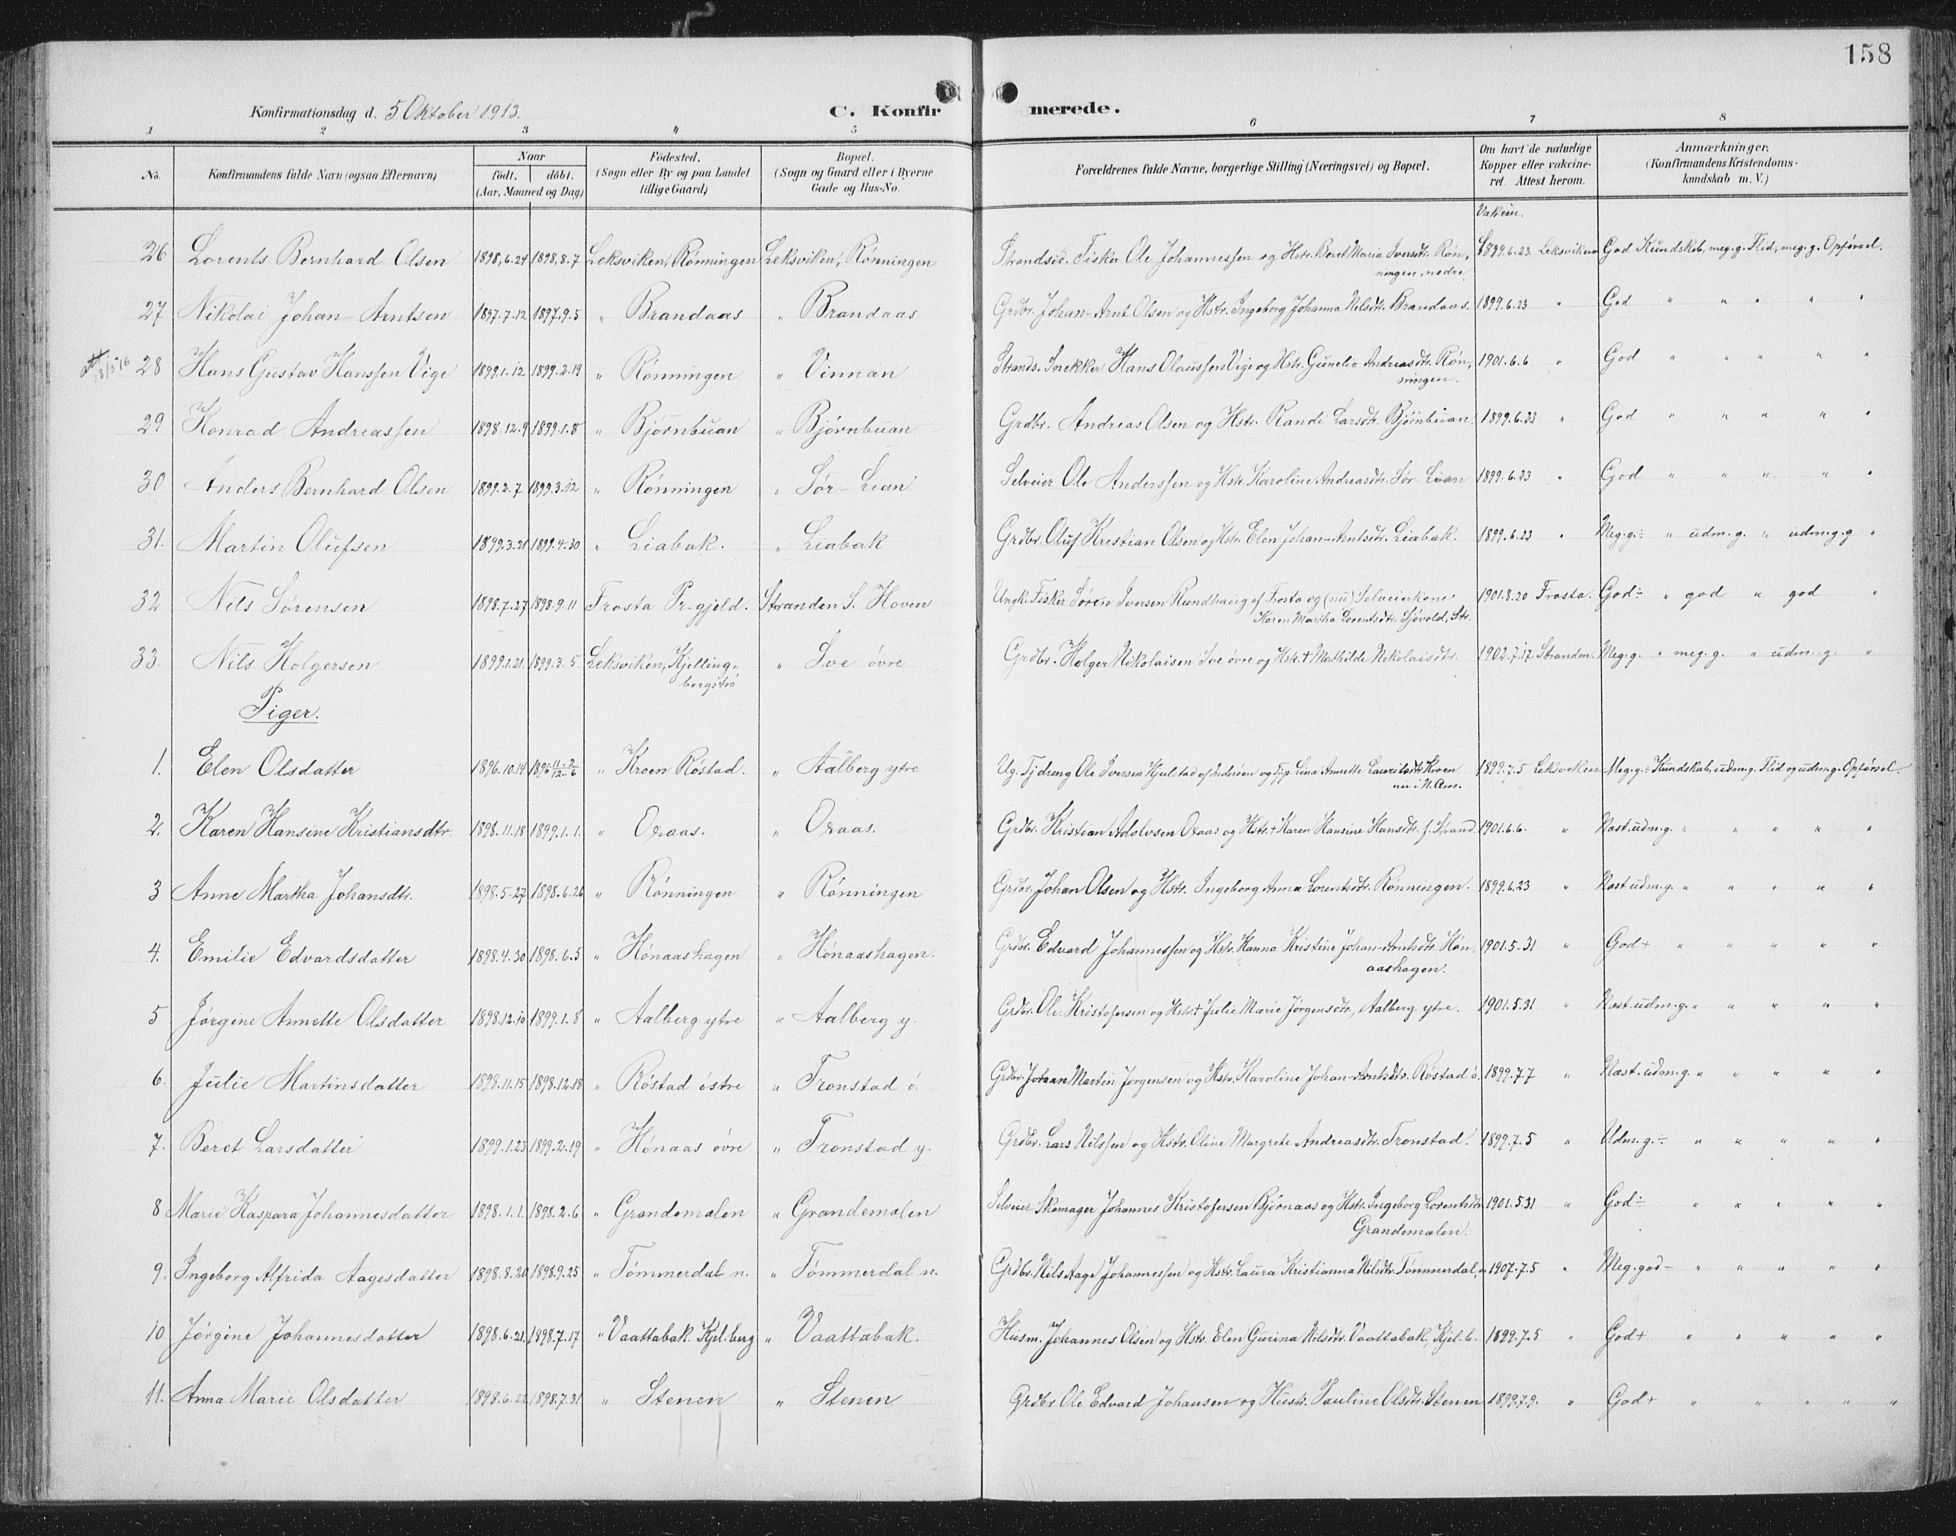 158
Konfirmationsdag d. 5 Oktober 1913. C. Konfirmerede.
1 2 3 4 5 6 7 8
No. Konfirmandens fulde Navn (ogsaa Efternavn) Naar født. døbt. (Aar, Maaned og Dag) Fødested. (Sogn eller By og paa Landet tillige Gaard) Bopæl. (Sogn og Gaard eller i Byerne Gade og Hus-No. Forældrenes fulde Navne, borgerlige Stilling (Næringsvei) og Bopæl. Om havt de naturlige Kopper eller vakcineret. Attest herom. Anmærkninger. (Konfirmandens Kristendomskundskab m. V.)
Vakcin.
26 Lorents Bernhard Olsen 1898.6.24 1898.8.7 Leksviken, Rønningen Leksviken, Rønningen Strandsid. Fisker Ole Johannessen og Hstr. Beret Maria Iversdtr. Rønningen, nedre 1899.6.23 Leksviken God Kundskab, meg. g. Flid, meg. g. Opførsel.
27 Nikolai Johan-Arntsen 1897.7.12 1897.9.5 " Brandaas " Brandaas Grdbr. Johan-Arnt Olsen og Hstr. Ingeborg Johanna Nilsdtr. Brandaas. 1899.6.23 " God " " " " "
28 Hans Gustav Hanssen Vige 1899.1.12 1899.2.19 " Rønningen " Vinnan Strands. Snekker Hans Olaussen Vige og Hstr. Gunelie Andreasdtr. Rønningen. 1901.6.6 " God " " " " "
29 Konrad Andreassen 1898.12.9 1899.1.8 " Bjørnbuan " Bjørnbuan Grdbr. Andreas Olsen og Hstr. Randi Larsdtr. Bjørnbuan. 1899.6.23 " God " " " " "
30 Anders Bernhard Olsen 1899.2.7 1899.3.12 " Rønningen " Sør-Lian Selveier Ole Anderssen og Hstr. Karoline Andreasdtr. Sør-Lian 1899.6.23 " God " " " " "
31. Martin Olufsen 1899.3.21 1899.4.30 " Liabak. " Liabak Grdbr. Oluf Kristian Olsen og Hstr. Elen Johan-Arntsdtr. Liabak. 1899.6.23 " Meg. g. ÷ " udm. g. " udm. g. "
32 Nils Sørensen 1898.7.27 1898.9.11 Frosta Pr-gjeld. Stranden S. Hoven Ungk. Fisker Søren Iversen Rundhaug af Frosta og (nu) Selveierkone Karen Martha Lorentsdtr. Sjøvold, Str. 1901.8.20 Frosta. God ÷ " god " god "
33. Nils Holgersen 1899.1.21. 1899.3.5. Leksviken, Kjellingbergstrø " Sve øvre Grdbr. Holger Nikolaisen Sve øvre og Hstr. + Mathilde Nikolaisdtr. 1902.7.17 Strandm. Meg. g. " meg. g. " udm. g. "
Piger.
1. Elen Olsdatter 1896.10.14 " Kroen Røstad. " Aalberg ytre Ug. Tjdreng Ole Iversen Hjelstad af Inderøen og Tjp. Lina Annette Lauritsdtr. Kroen nu i N. Am. 1899.7.5 Leksviken Meg. g. ÷ Kundskab, udm. g. Flid og udm. g. Opførsel.
2. Karen Hansine Kristiansdtr. 1898.11.18 1899.1.1. " Oxaas. " Oxaas. Grdbr. Kristian Adolvsen Oxaas og Hstr. + Karen Hansine Hansdtr. f. Strand 1901.6.6. " Næst. udm. g. " " " " "
3 Anne Martha Johansdtr. 1898.5.27 1898.6.26 " Rønningen " Rønningen Grdbr. Johan Olsen og Hstr. Ingeborg Anna Lorentsdtr. Rønningen. 1899.6.23 " Næst udm. g. " " " " "
4. Emilie Edvardsdatter 1898.4.30 1898.6.5 " Hønaashagen " Hønaashagen. Grdbr. Edvard Johannessen og Hstr. Hanna Kristine Johan-Arntsdtr. Hønaashagen. 1901.5.31 " God + " " " " "
5 Jørgine Annette Olsdatter 1898.12.10 1899.1.8 " Aalberg ytre " Aalberg y. Grdbr. Ole Kristofersen og Hstr. + Julie Marie Jørgensdtr, Aalberg ytre. 1901.5.31 " Næst. udm. g. " " " " "
6. Julie Martinsdatter 1898.11.15 1898.12.18 " Røstad østre " Tronstad ø. Grdbr. Johan Martin Jørgensen og Hstr. Karoline Johan-Arntsdtr. Røstad ø. 1899.7.7 " Næst. udm. g. " " " " "
7. Beret Larsdatter 1899.1.23 1899.2.19 " Hønaas øvre " Tronstad y. Grdbr. Lars Nilssen og Hstr. Oline Margrete Andreasdtr. Tronstad. 1899.7.5 " Udm. g. ÷ " " " " "
8 Marie Kaspara Johannesdatter 1898.1.1. 1898.2.6 " Grandemalen " Grandemalen Selveier Skomager Johannes Kristofersen Bjørnaas og Hstr. Ingeborg Lorentsdtr. Grandemalen. 1901.5.31 " God ÷ " " " " "
9. Ingeborg Alfrida Aagesdatter 1898.8.20 1898.9.25 " Tømmerdal n. " Tømmerdal n. Grdbr. Nils Aage Johannessen og Hstr. Laura Kristianna Nilsdtr. Tømmerdal, n 1907.7.5 " Meg. god – " " " " "
10 Jørgine Johannesdatter 1898.6.21 1898.7.17 " Vaattabak. Kjel.berg " Vaattabak. Husm. Johannes Olsen og Hstr. Elen Gurina Nilsdtr. Vaattabak, Kjel. b. 1899.7.5 " God + " " " " "
11. Anna Marie Olsdatter 1898.6.22 1898.7.31 " Stenen " Stenen Grdbr. Ole Edvard Johansen og Hustr. Pauline Olsdtr. Stenen 1899.7.9. " God + " " " " "